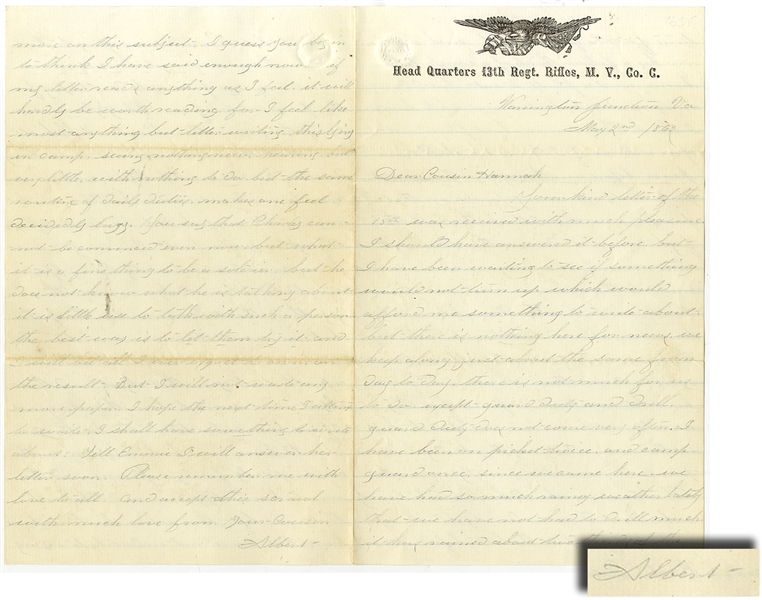 Head Quarters 13th Regt. Rifles, M. V., Co. C.
Warrington Junction Va
May 2nd 186
Dear Cousin Hannah
Your kind letter of the
was received with much pleasure
I should have answered it before but
I have been waiting to see if something
would not turn up which would
afford me something to write about
but there is nothing here for news, we
keep along just about the same from
day to day. there is not much for us
to do except guard duty and drill
guard duty does not come very often I
have been on picket twice and camp
guard once, since we came here. we
have had so much rainy weather lately
that we have not had to drill much
it has rained about
more on this subject. I guess you begin
to think I have said enough now if
my letter reads anything as I feel it will
hardly be worth reading for I feel like
most anything but letter writing this lying
in camp seeing nothing new, hearing but
very little with nothing to do but the same
routine of daily duties makes one feel
decidedly lazy. You say that Charley can
not be convinced even now but what
it is a fine thing to be a soldier but he
does not know what he is talking about
it is little use to talk with such a person
the best way is to let them try it and
the result. But I will not waste any
more paper. I hope the next time I attempt
to write I shall have something to write
about. Tell Emmie I will answer her
letter soon. Please remember me with
love to all and accept this
with much love from Your Cousin
Albert
Albert